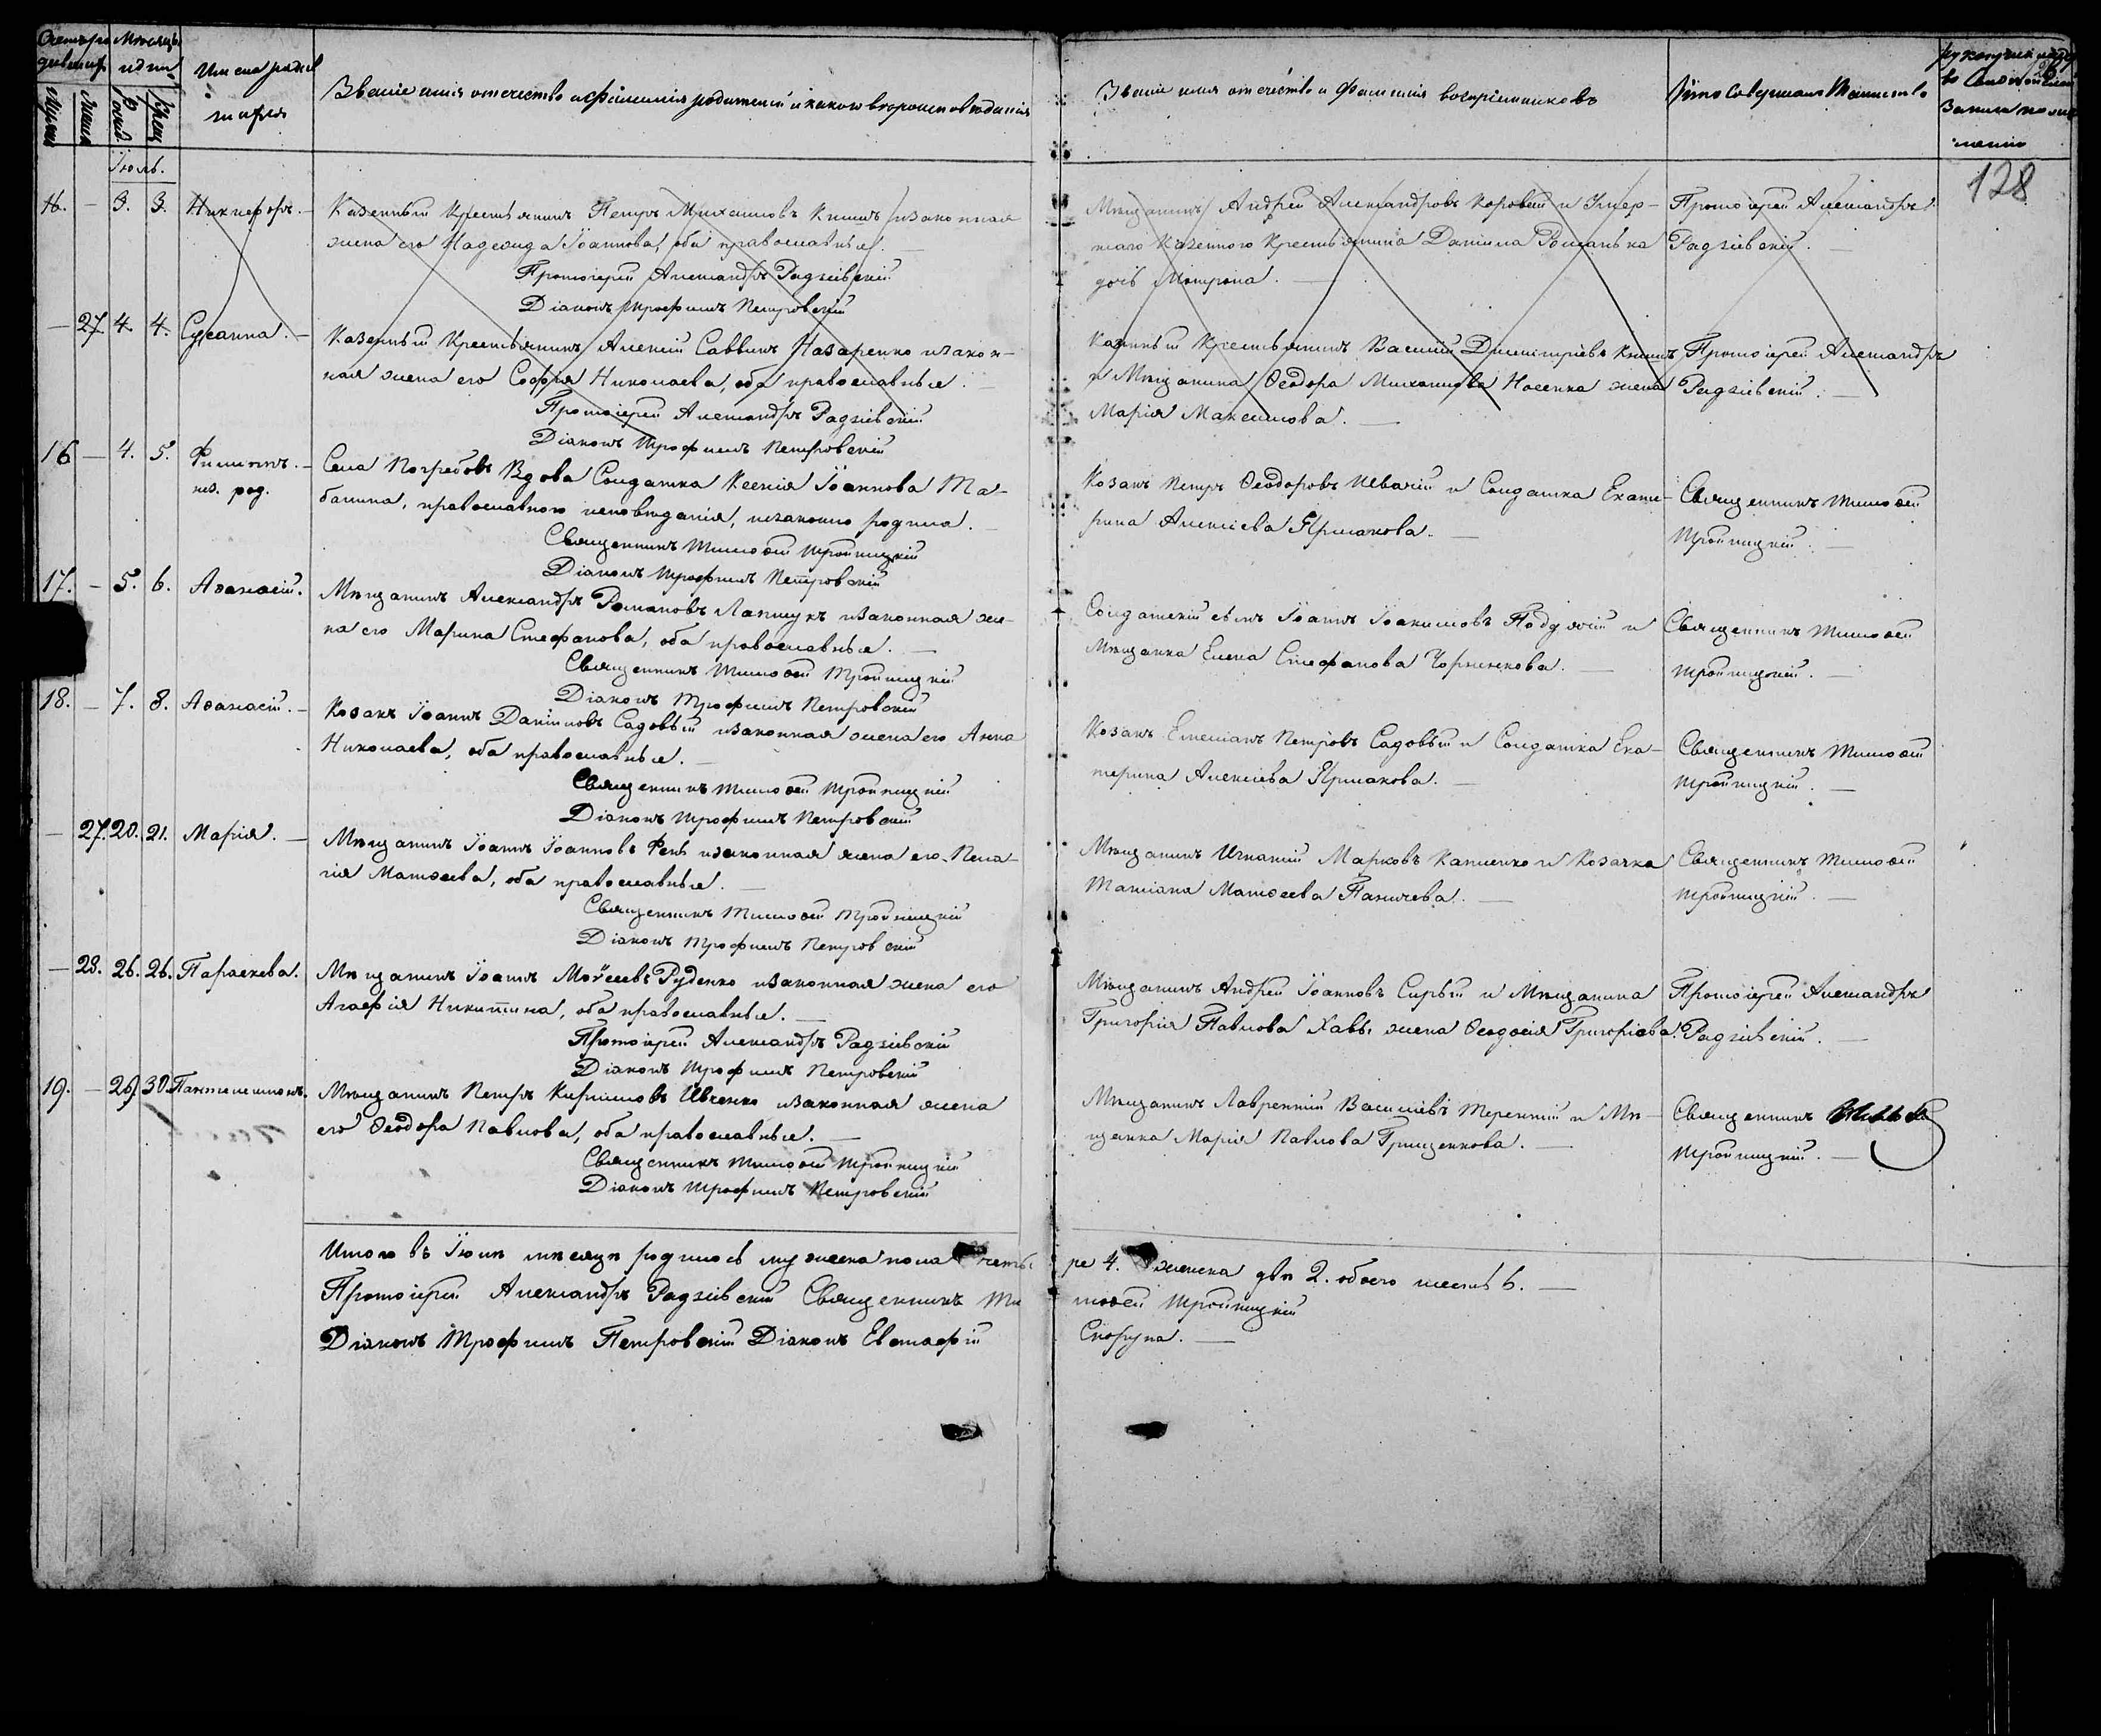 Счетъ ро
дивших.
Мѣсяцъ
и дни
Имена родив
шихся
Званіе имя отечество и фамилія родителей и какого вѣроисповѣданія
Званіе имя отечество и фамилія воспріемниковъ
Кто совершалъ Таинство
Рукоприкладс
Муж.
Женс.
Рожд.
Крещ.
Іюль.
128
16. — 3. 3. Никифоръ. —
Казенный Крестьянинъ Петръ Михаиловъ Книшъ и законная
жена его Надежда Іоаннова, оба православные. —
Протоіерей Александръ Радзіевскій
Діаконъ Трофимъ Петровскій
Мѣщанинъ Андрей Александровъ Коровай и Умер-
шаго Казенного Крестьянина Даніила Романька
дочь Мотрона. —
Протоіерей Александръ
Радзіевскій. —
— 27. 4. 4. Сусанна. —
Казенный Крестьянинъ Алексій Саввинъ Назаренко и закон-
ная жена его Софія Николаева, оба православные. —
Протоіерей Александръ Радзіевскій
Діаконъ Трофимъ Петровскій
Казенный Крестьянинъ Василій Димитріевъ Книшъ
и Мѣщанина Ѳеодора Михаилова Носенка жена
Марія Максимова. —
Протоіерей Александръ
Радзіевскій. —
16 — 4. 5. Филиппъ. —
нез. род.
Села Погребовъ Вдова Солдатка Ксенія Іоаннова Та-
банина, православного исповѣданія, незаконно родила. —
Священникъ Тимоѳей Тройницкій
Діаконъ Трофимъ Петровскій
Козакъ Петръ Ѳеодоровъ Ивачій и Солдатка Екате-
рина Алексіева Ярмакова. —
Священникъ Тимоѳей
Тройницкій. —
17. — 5. 6. Аѳанасій.
Мѣщанинъ Александръ Романовъ Лапшукъ и законная же-
на его Марина Стефанова, оба православные. —
Священникъ Тимоѳей Тройницкій
Діаконъ Трофимъ Петровскій
Солдатскій сынъ Іоаннъ Іоакимовъ Поддячій и
Мѣщанка Елена Стефанова Чорненкова. —
Священникъ Тимоѳей
Тройницкій. —
18. — 7. 8. Аѳанасій. —
Козакъ Іоаннъ Даніиловъ Садовый и законная жена его Анна
Николаева, оба православные. —
Священникъ Тимоѳей Тройницкій
Діаконъ Трофимъ Петровскій
Козакъ Емеліанъ Петровъ Садовый и Солдатка Ека-
терина Алексіева Ярмакова. —
Священникъ Тимоѳей
Тройницкій. —
— 27. 20. 21. Марія. —
Мѣщанинъ Іоаннъ Іоанновъ Фень и законная жена его Пела-
гія Матѳеева, оба православные. —
Священникъ Тимоѳей Тройницкій
Діаконъ Трофимъ Петровскій
Мѣщанинъ Игнатій Марковъ Капченко и Козачка
Татіана Матѳеева Паничева. —
Священникъ Тимоѳей
Тройницкій. —
— 28. 26. 26. Параскева.
Мѣщанинъ Іоаннъ Моѵсеевъ Руденко и законная жена его
Агафія Никитина, оба православные. —
Протоіерей Александръ Радзіевскій
Діаконъ Трофимъ Петровскій
Мѣщанинъ Андрей Іоанновъ Сирый и Мѣщанина
Григорія Павлова Хавы жена Ѳеодосія Григоріева.
Протоіерей Александръ
Радзіевскій. —
19. — 29. 30. Пантелеимонъ.
Мѣщанинъ Петръ Кирилловъ Ивченко и законная жена
его Ѳеодора Павлова, оба православные. —
Священникъ Тимоѳей Тройницкій
Діаконъ Трофимъ Петровскій
Мѣщанинъ Лаврентій Васильевъ Терентій и Мѣ-
щанка Марія Павлова Грищенкова. —
Священникъ
Тройницкій. —
Итого въ Іюлѣ мѣсяцѣ родилось мужеска пола четы
ре 4. женска двѣ 2. обоего шесть 6. —
Протоіерей Александръ Радзіевскій Священникъ Ти
моѳей Тройницкій
Діаконъ Трофимъ Петровскій Діаконъ Евстафій
Скорупа. —